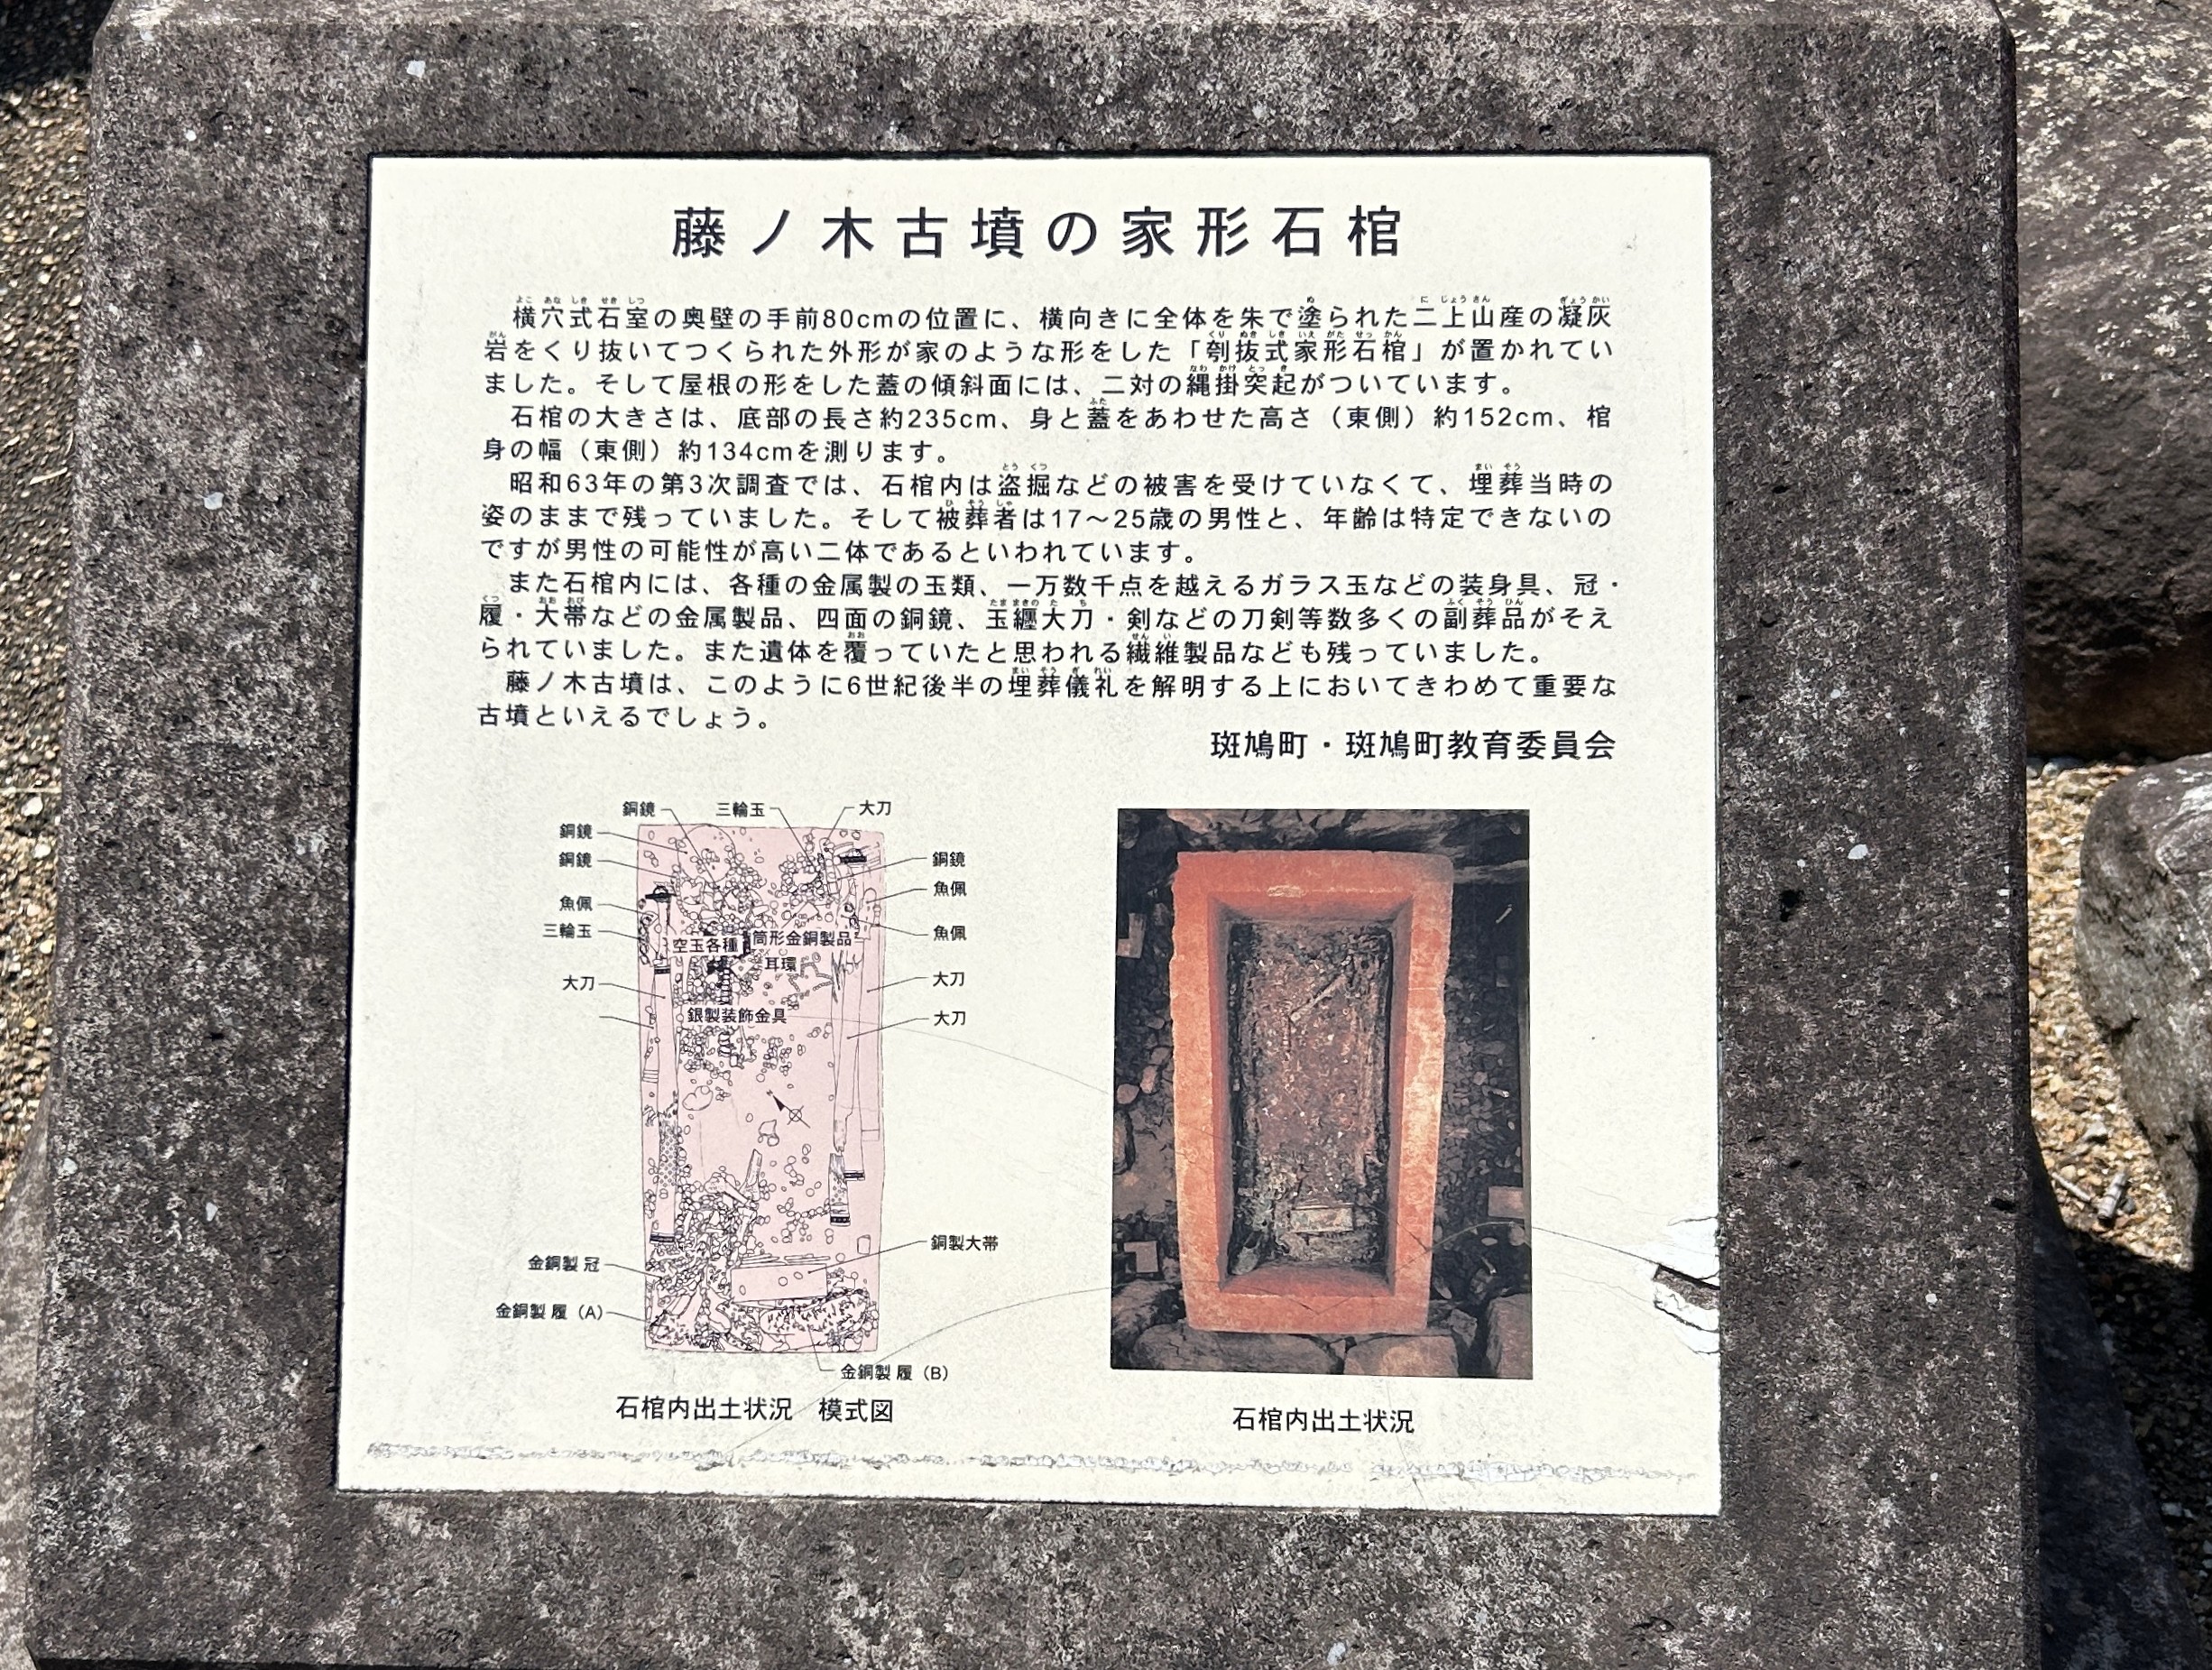 藤ノ木古墳の家形石棺
横穴式石室の奥壁の手前80cmの位置に、横向きに全体を朱で塗られた二上山産の凝灰
岩をくり抜いてつくられた外形が家のような形をした「刳抜式家形石棺」が置かれてい
ました。そして屋根の形をした蓋の傾斜面には、二対の縄掛突起がついています。
石棺の大きさは、底部の長さ約235cm、身と蓋をあわせた高さ（東側）約152cm、棺
身の幅（東側）約134cmを測ります。
昭和63年の第3次調査では、石棺内は盗掘などの被害を受けていなくて、埋葬当時の
姿のままで残っていました。そして被葬者は17～25歳の男性と、年齢は特定できないの
ですが男性の可能性が高い二体であるといわれています。
また石棺内には、各種の金属製の玉類、一万数千点を越えるガラス玉などの装身具、冠・
履・大帯などの金属製品、四面の銅鏡、玉纏大刀・剣などの刀剣等数多くの副葬品がそえ
られていました。また遺体を覆っていたと思われる繊維製品なども残っていました。
藤ノ木古墳は、このように6世紀後半の埋葬儀礼を解明する上においてきわめて重要な
古墳といえるでしょう。
斑鳩町・斑鳩町教育委員会
銅鏡
三輪玉
大刀
銅鏡
銅鏡
魚佩
三輪玉
大刀
銅鏡
魚佩
魚佩
大刀
大刀
空玉各種
筒形金銅製品
耳環
銀製装飾金具
N
銅製大帯
金銅製 冠
金銅製 履（A）
金銅製 履（B）
石棺内出土状況　模式図
石棺内出土状況